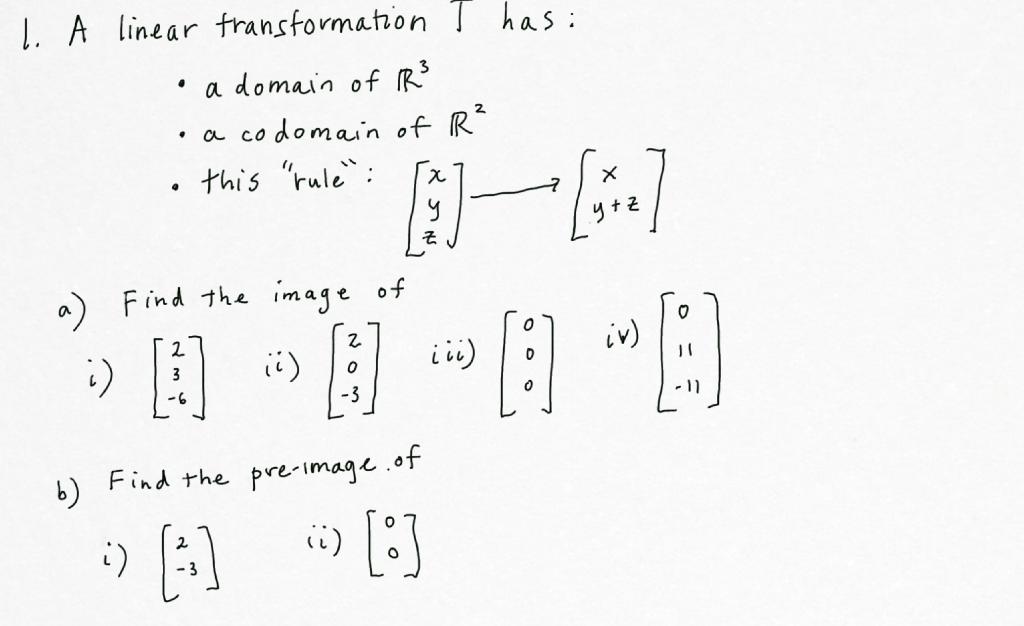 1. A linear transformation T has:
• a domain of ℝ³
• a codomain of ℝ²
• this "rule": [x y z] → [x y+z]
a) Find the image of
i) [2 3 -6] ii) [2 0 -3] iii) [0 0 0] iv) [0 11 -11]
b) Find the pre-image of
i) [2 -3] ii) [0 0]